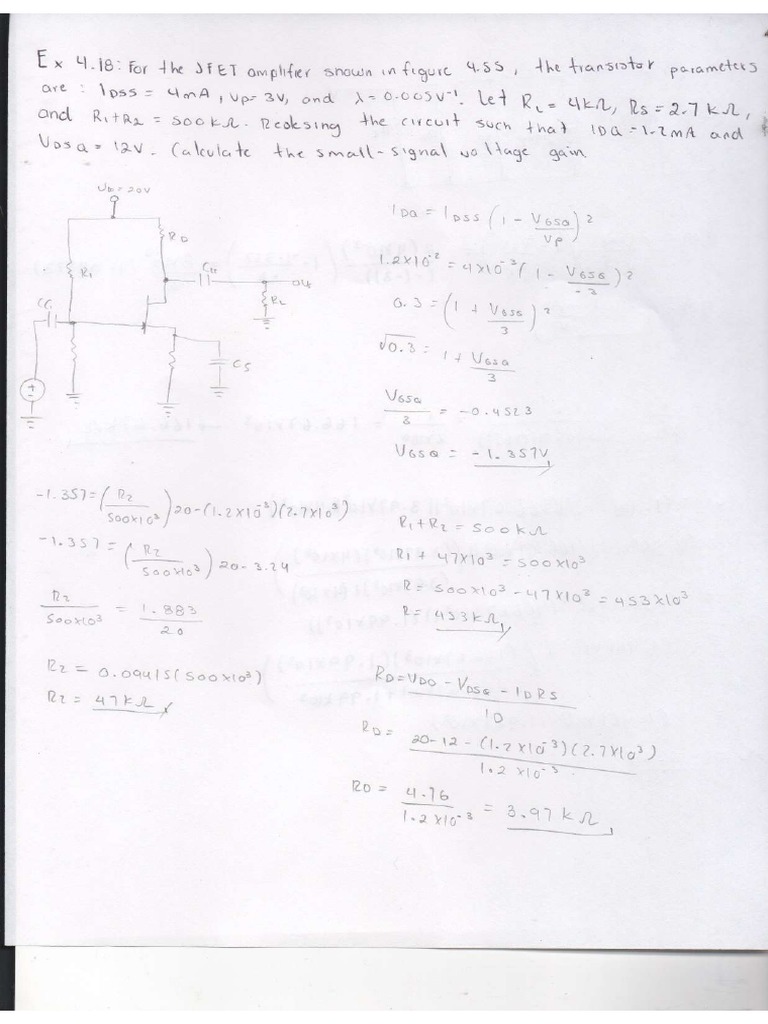 Ex 4.18: For the JFET amplifier shown in figure 4.55, the transistor parameters
are: IDSS = 4mA, VP= 3V, and λ = 0.005V⁻¹. Let RL= 4kΩ, RS = 2.7 kΩ,
and R1+R2 = 500kΩ. the circuit such that IDQ = 1.2mA and
VDSQ = 12V. Calculate the small-signal voltage gain
= 20V
RD
R1
RL
CS
IDQ = IDSS (1 - VGSQ/VP)²
1.2x10⁻² = 4x10⁻³ (1 - VGSQ/-3)²
0.3 = (1 + VGSQ/3)²
√0.3 = 1 + VGSQ/3
VGSQ/3 = -0.4523
VGSQ = -1.357V
-1.357 = (R2/500x10³) 20 - (1.2x10⁻³)(2.7x10³)
-1.357 = (R2/500x10³) 20 - 3.24
R2/500x10³ = 1.883/20
R2 = 0.09415(500x10³)
R2 = 47kΩ
R1+R2 = 500kΩ
R1 + 47x10³ = 500x10³
R = 500x10³ - 47x10³ = 453x10³
R = 453kΩ
RD = VDD - VDSQ - IDRS/ID
RD = 20-12-(1.2x10⁻³)(2.7x10³)/1.2x10⁻³
RD = 4.76/1.2x10⁻³ = 3.97kΩ